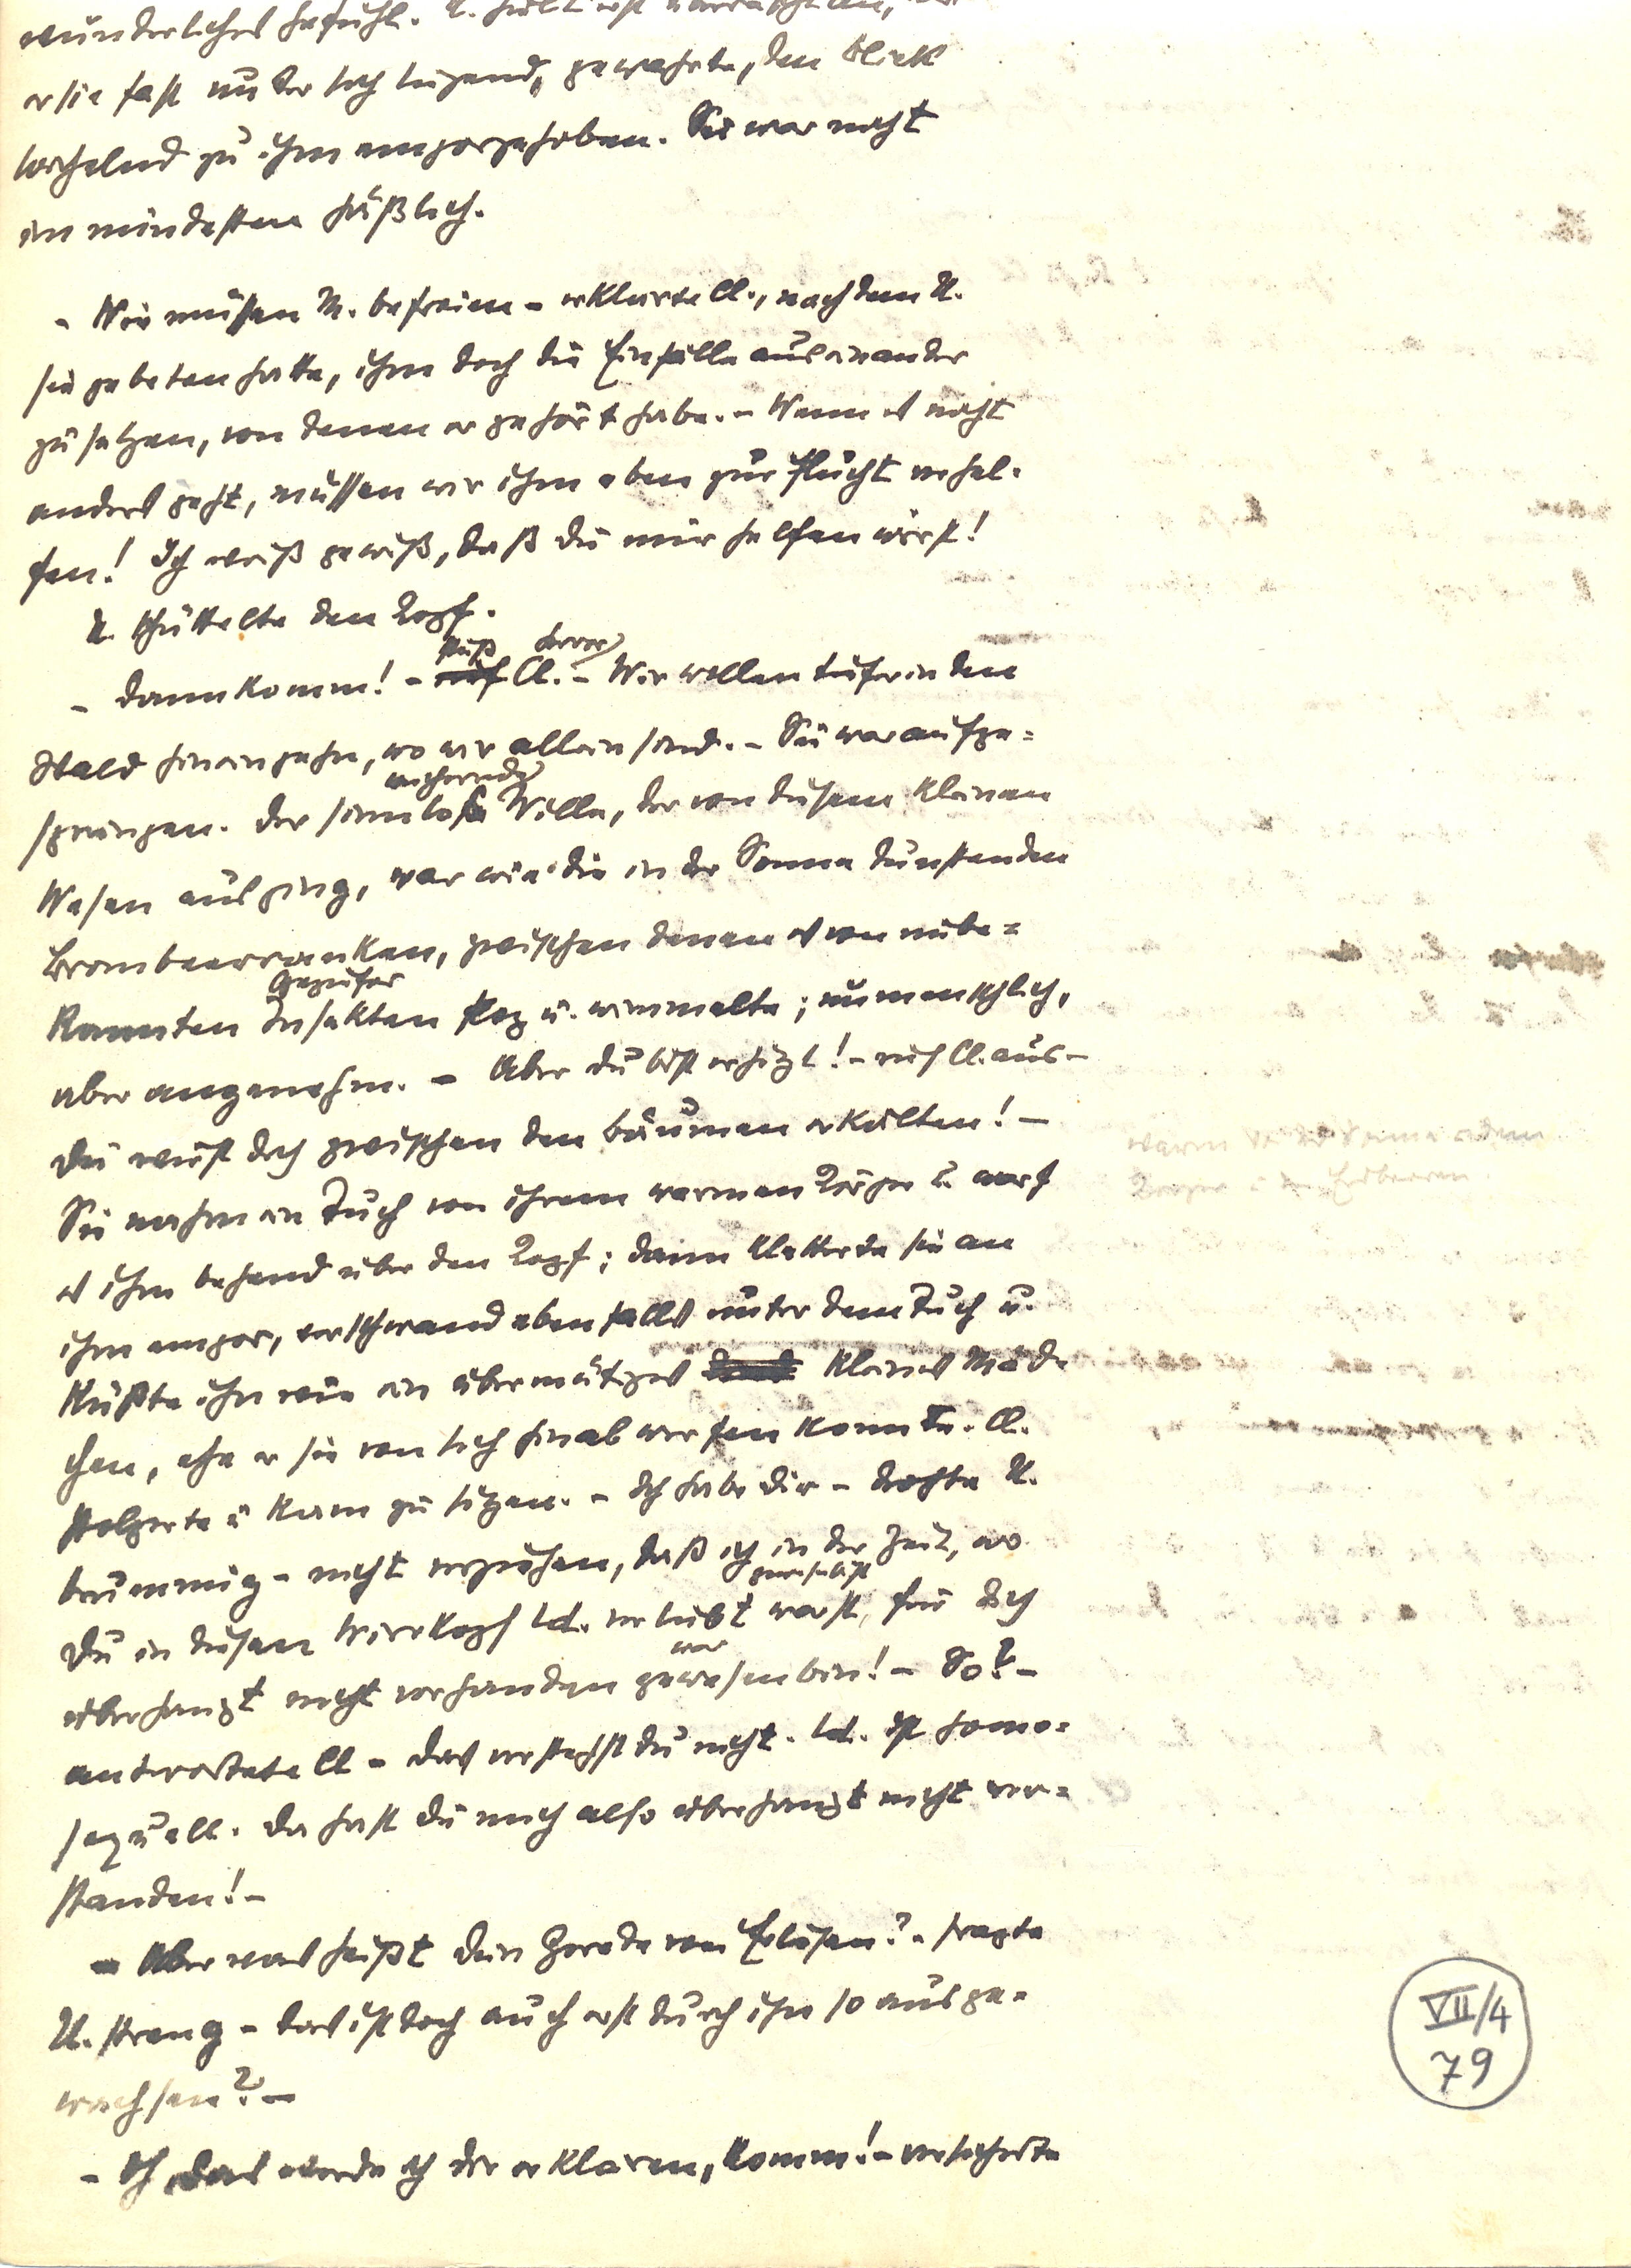 wunderliches Gefühl. U. hielt erst
er sie fast unter sich liegend, gewahrte, den Blick
lächelnd zu ihm emporgehoben. Sie war nicht
im mindesten häßlich.
- Wir müssen M. befreien - erklärte Cl., nachdem U.
sie gebeten hatte, ihm doch die Einfälle auseinander
zu setzen, von denen er gehört habe. - Wenn es nicht
anders geht, müssen wir ihm eben zur Flucht verhel-
fen! Ich weiß gewiß, daß du mir helfen wirst!
U. schüttelte den Kopf.
stieß hervor
- Dann komm! - rief Cl. - Wir wollen tiefer in den
Wald hineingehn, wo wir allein sind. - Sie war aufge=
wuchernde
sprungen. Der sinnlose Wille, der von diesem kleinen
Wesen ausging, war wie die in der Sonne dunstenden
Brombeerranken, zwischen denen es von unbe=
Geziefer
kannten Insekten flog u. wimmelte; unmenschlich,
aber angenehm. - Aber du bist erhitzt! - rief Cl. aus -
Du wirst dich zwischen den Bäumen erkälten! -
Sie nahm ein Tuch von ihrem warmen Körper u. warf
es ihm behend über den Kopf; dann kletterte sie an
ihm empor, verschwand ebenfalls unter dem Tuch u.
küßte ihn wie ein übermütiges kleines Mäd-
chen, ehe er sie von sich hinab werfen konnte. Cl.
stolperte u kam zu sitzen. - Ich habe dir - drohte U.
brummig - nicht verziehen, daß ich in der Zeit, wo
du in diesen Wirrkopf Ld. verliebt warst, für dich
war
überhaupt nicht vorhanden gewesen bin! - So? -
antwortete Cl - Das verstehst du nicht. Ld. ist homo=
sexuell. Da hast du mich also überhaupt nicht ver=
standen! -
- Aber was heißt dein Gerede von Erlösen? - fragte
U. streng - das ist doch auch erst durch ihn so ausge-
wachsen? -
- Oh, das werde ich dir erklären, komm! - versicherte
warm
VII/4
79